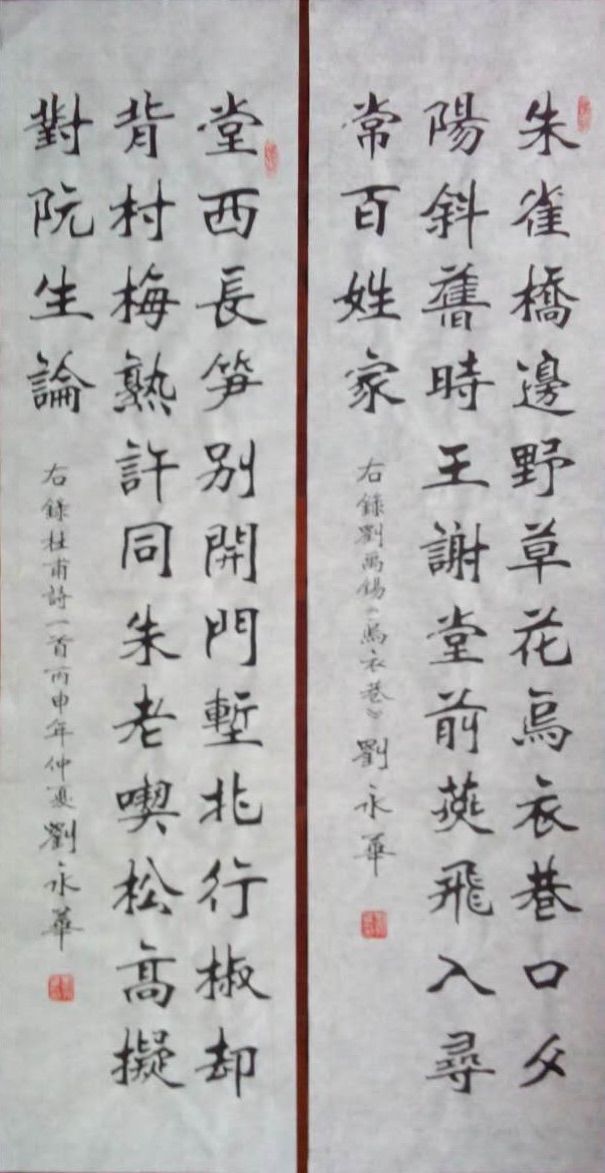 朱雀橋邊野草花烏衣巷口夕
陽斜舊時王謝堂前燕飛入尋
常百姓家
右錄劉禹錫《烏衣巷》劉永華
堂西長笋別開門塹北行椒却
背村梅熟許同朱老喫松高擬
對阮生論
右錄杜甫詩一首丙申年仲夏劉永華